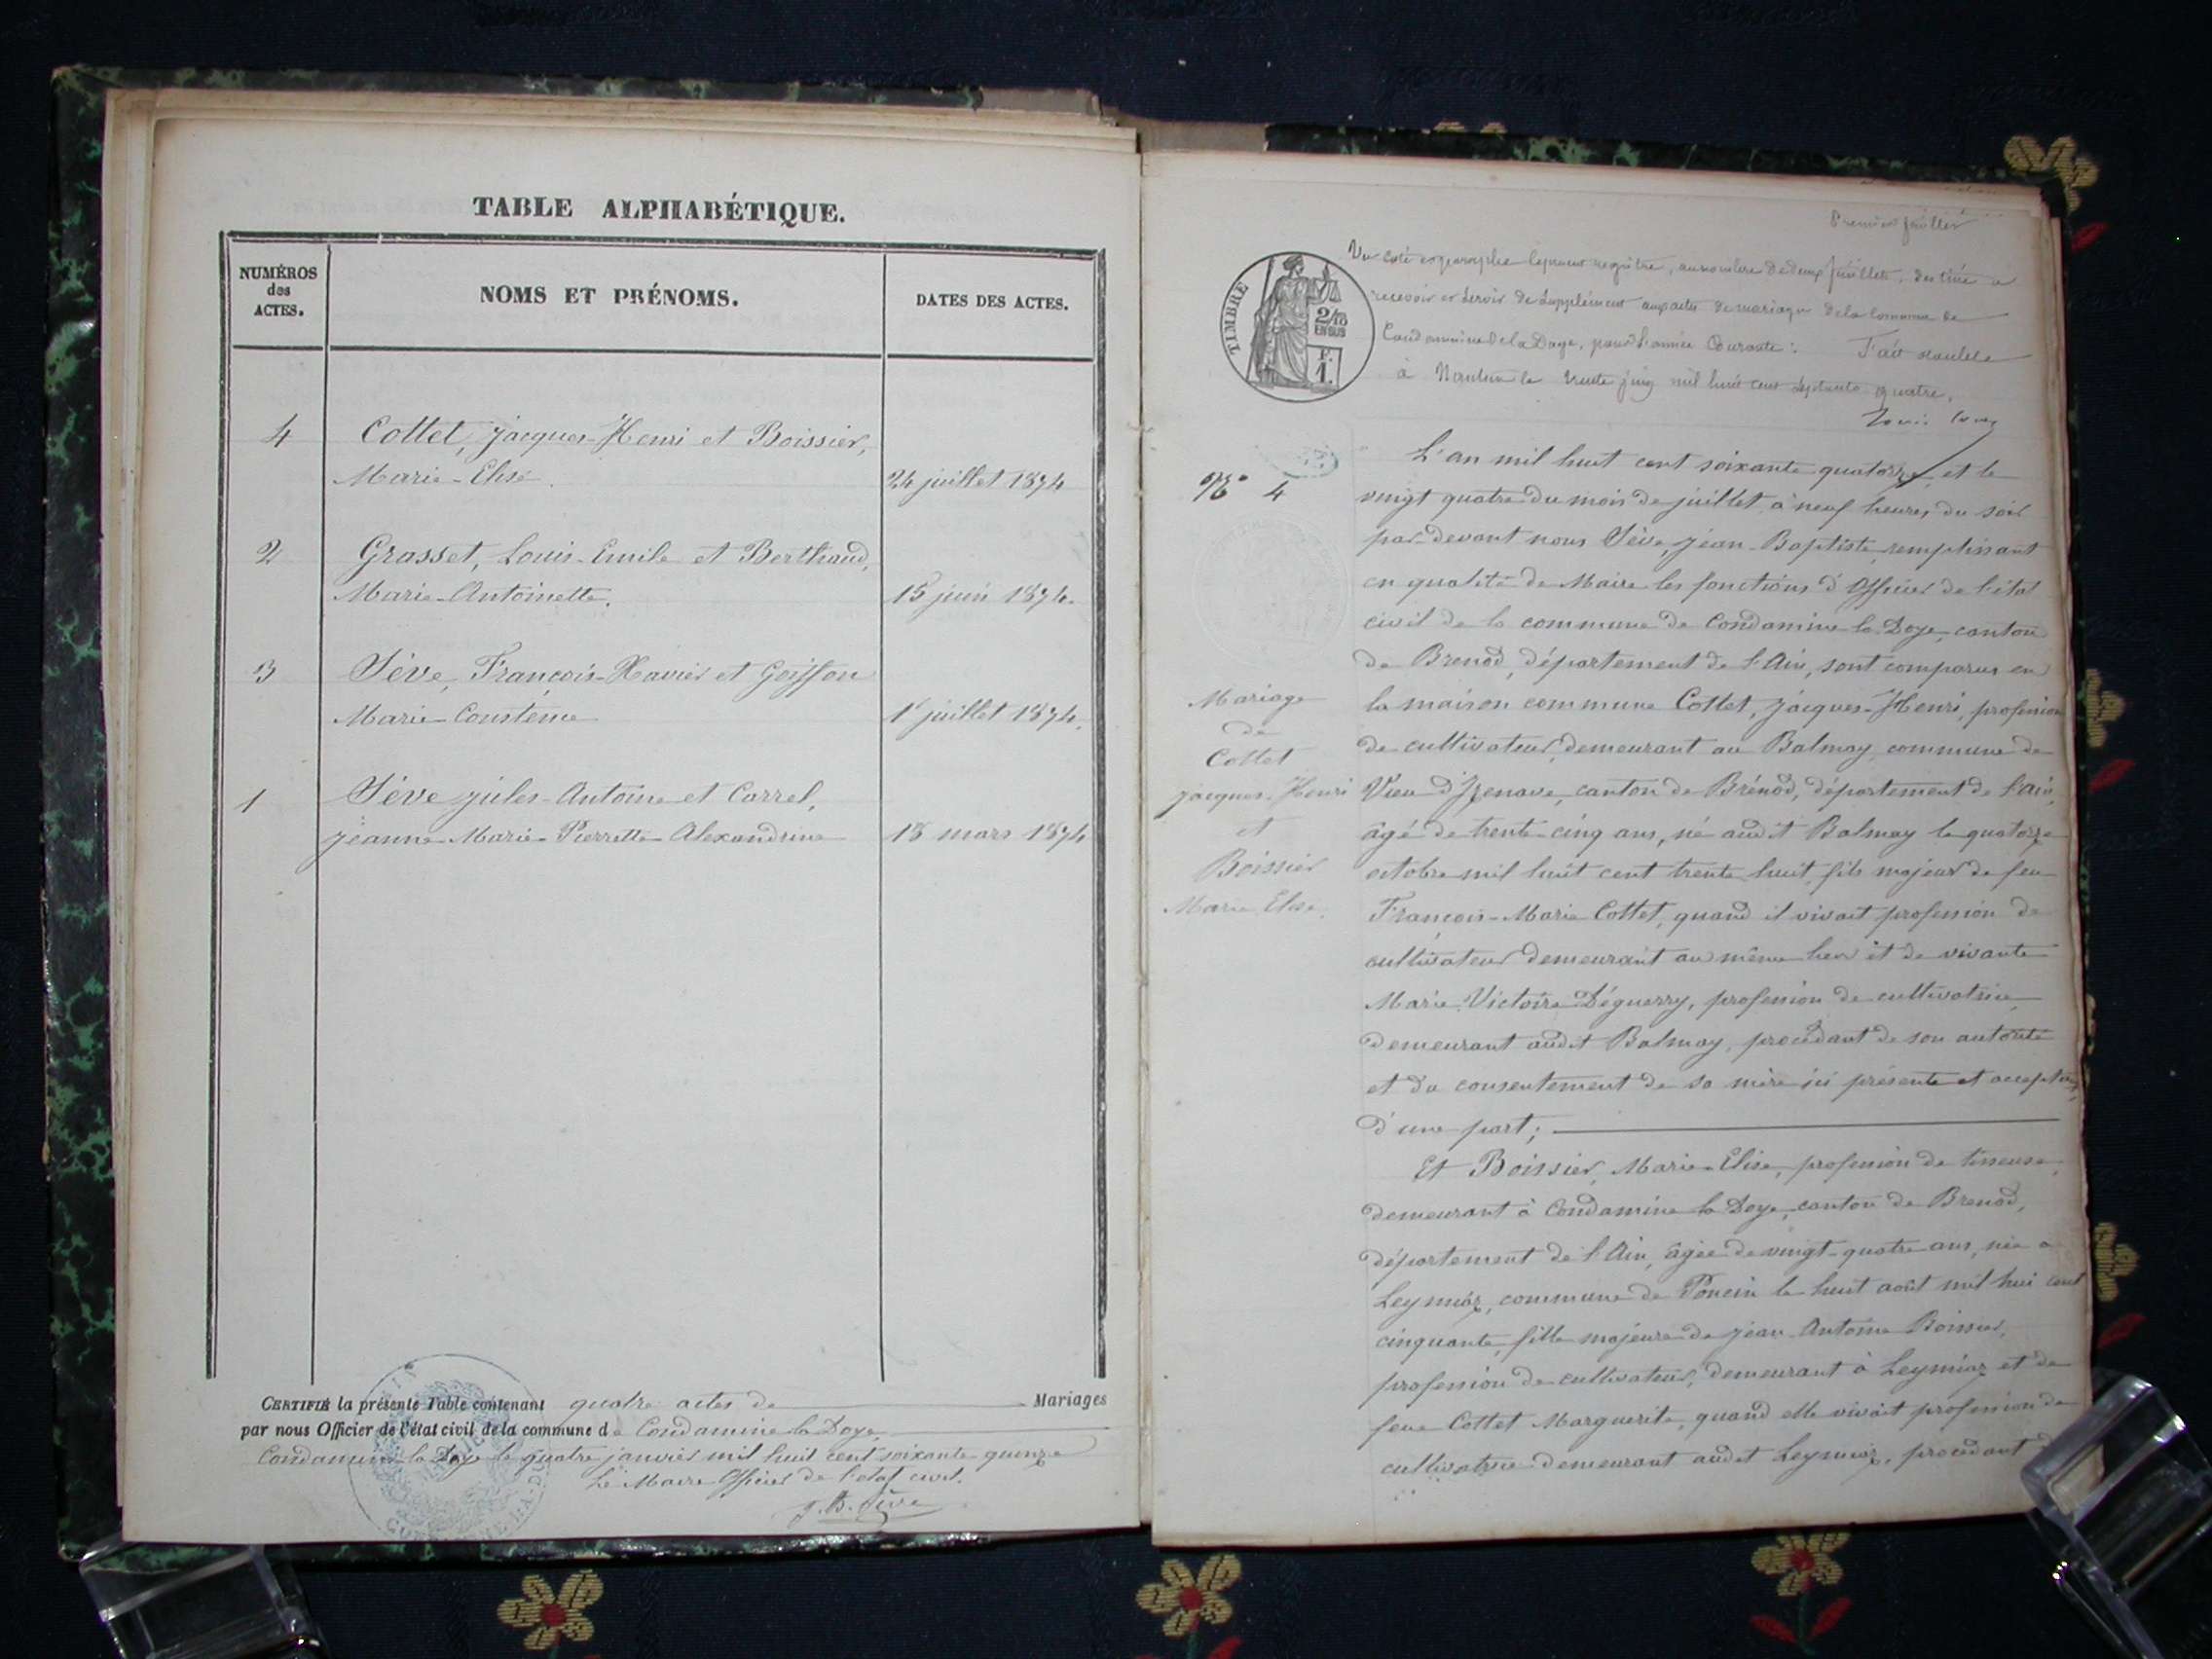 TABLE ALPHABÉTIQUE.
NUMÉROS
des
ACTES.
NOMS ET PRÉNOMS.
DATES DES ACTES.
4 Cottet, Jacques-Henri et Boissier,
Marie-Elise. 24 juillet 1874
2 Grasset, Louis-Emile et Berthaud,
Marie-Antoinette. 15 juin 1874.
3 Sève, François-Xavier et Goiffon
Marie-Constence 1er juillet 1874.
1 Sève Jules-Antoine et Carrel,
Jeanne-Marie-Pierrette-Alexandrine 18 mars 1874
CERTIFIÉ la présente Table contenant quatre actes de Mariages
par nous Officier de l'état civil de la commune de Condamine la Doye,
Condamine la Doye le quatre janvier mil huit cent soixante quinze
Le Maire Officier de l'état civil.
J. B. Sève
Premier feuillet
Vu coté et paraphé le présent registre, au nombre de deux feuillets, destiné à
recevoir et servir de supplément aux actes de mariage de la Commune de
Condamine de la Doye, pour l'année Courante: Fait double
à Nantua le trente juin mil huit cent septante quatre.
TIMBRE
2/10
EN SUS
F.
1.
N° 4
L'an mil huit cent soixante quatorze, et le
vingt quatre du mois de juillet à neuf heures du soir
par-devant nous Sève, Jean-Baptiste remplissant
en qualité de Maire les fonctions d'Officier de l'état
civil de la commune de Condamine la Doye, canton
de Brenod, département de l'Ain, sont comparus en
la maison commune Cottet, Jacques-Henri, profession
de cultivateur, demeurant au Balmay, commune de
Vieu d'Izenave, canton de Brénod, département de l'ain,
âgé de trente-cinq ans, né audit Balmay le quatorze
octobre mil huit cent trente huit, fils majeur de feu
François-Marie Cottet, quand il vivait profession de
cultivateur demeurant au même lieu et de vivante
Marie Victoire Déguerry, profession de cultivatrice
demeurant audit Balmay, procédant de son autorité
et du consentement de sa mère ici présente et acceptante,
d'une part;
Et Boissier, Marie-Elise, profession de tisseuse,
demeurant à Condamine la Doye, canton de Brenod,
département de l'Ain, âgée de vingt-quatre ans, née à
Leymiaz, commune de Poncin le huit août mil hui cent
cinquante, fille majeure de Jean-Antoine Boissier,
profession de cultivateur, demeurant à Leymiaz et de
feue Cottet Marguerite, quand elle vivait profession de
cultivatrice demeurant audit Leymiaz, procédant
Mariage
de
Cottet
Jacques-Henri
et
Boissier
Marie Elise.